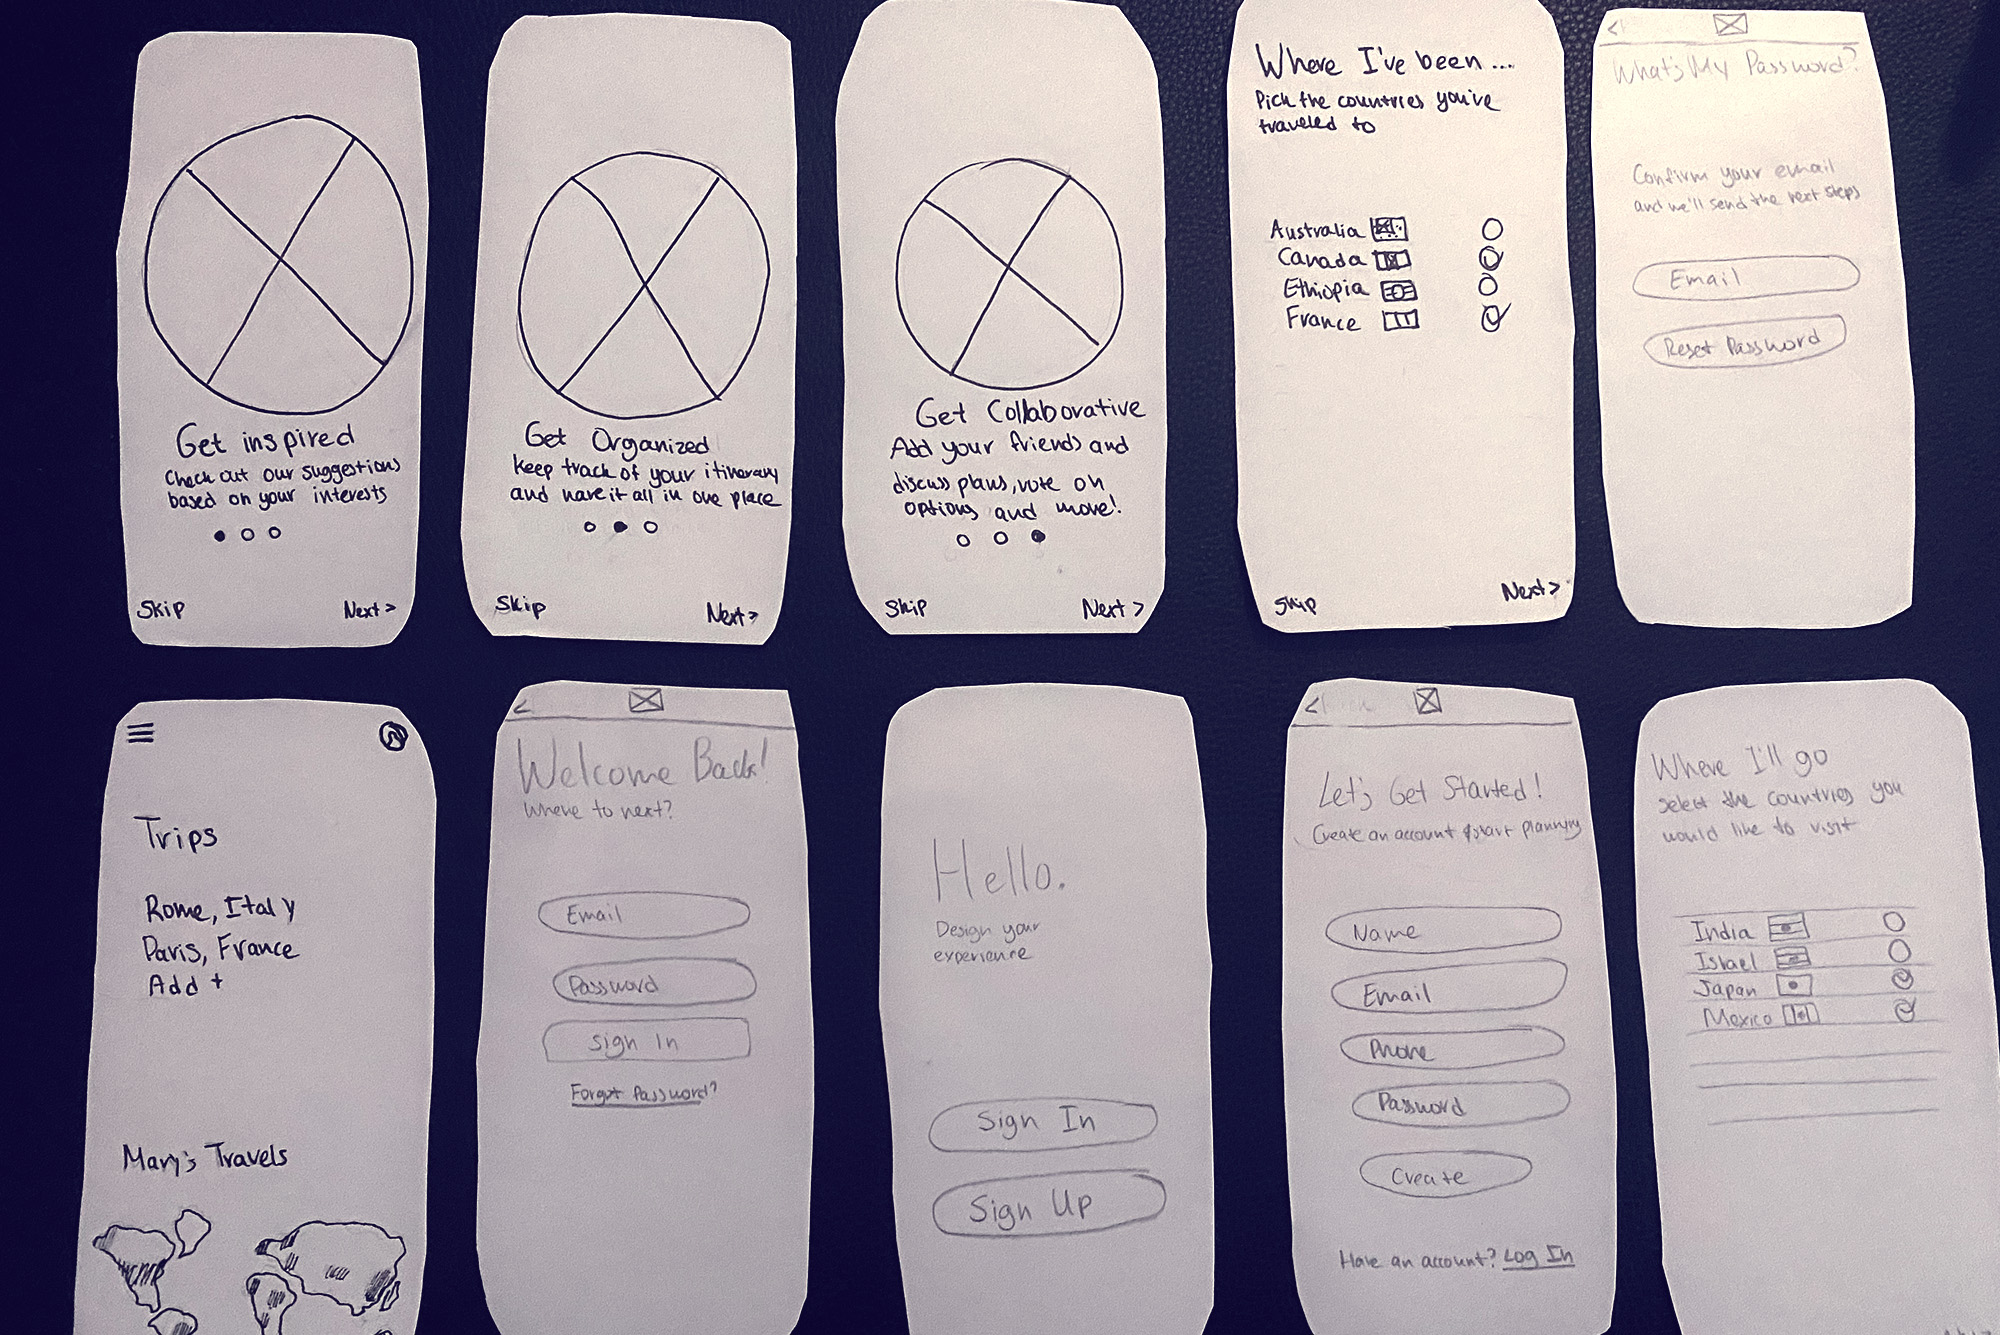 Get inspired
Check out our suggestions
based on your interests
Skip
Next >
Get Organized
keep track of your itinerary
and have it all in one place
Skip
Next >
Get Collaborative
Add your friends and
discuss plans, vote on
options and move!
Skip
Next >
Where I've been ...
Pick the countries you've
traveled to
Australia
Canada
Ethiopia
France
Skip
Next >
<
What's My Password?
Confirm your email
and we'll send the next steps
Email
Reset Password
Trips
Rome, Italy
Paris, France
Add +
Mary's Travels
<
Welcome Back!
Where to next?
Email
Password
Sign In
Forgot Password?
Hello.
Design your
experience
Sign In
Sign Up
<
Let's Get Started!
Create an account & start planning
Name
Email
Phone
Password
Create
Have an account? Log In
Where I'll go
select the countries you
would like to visit
India
Israel
Japan
Mexico